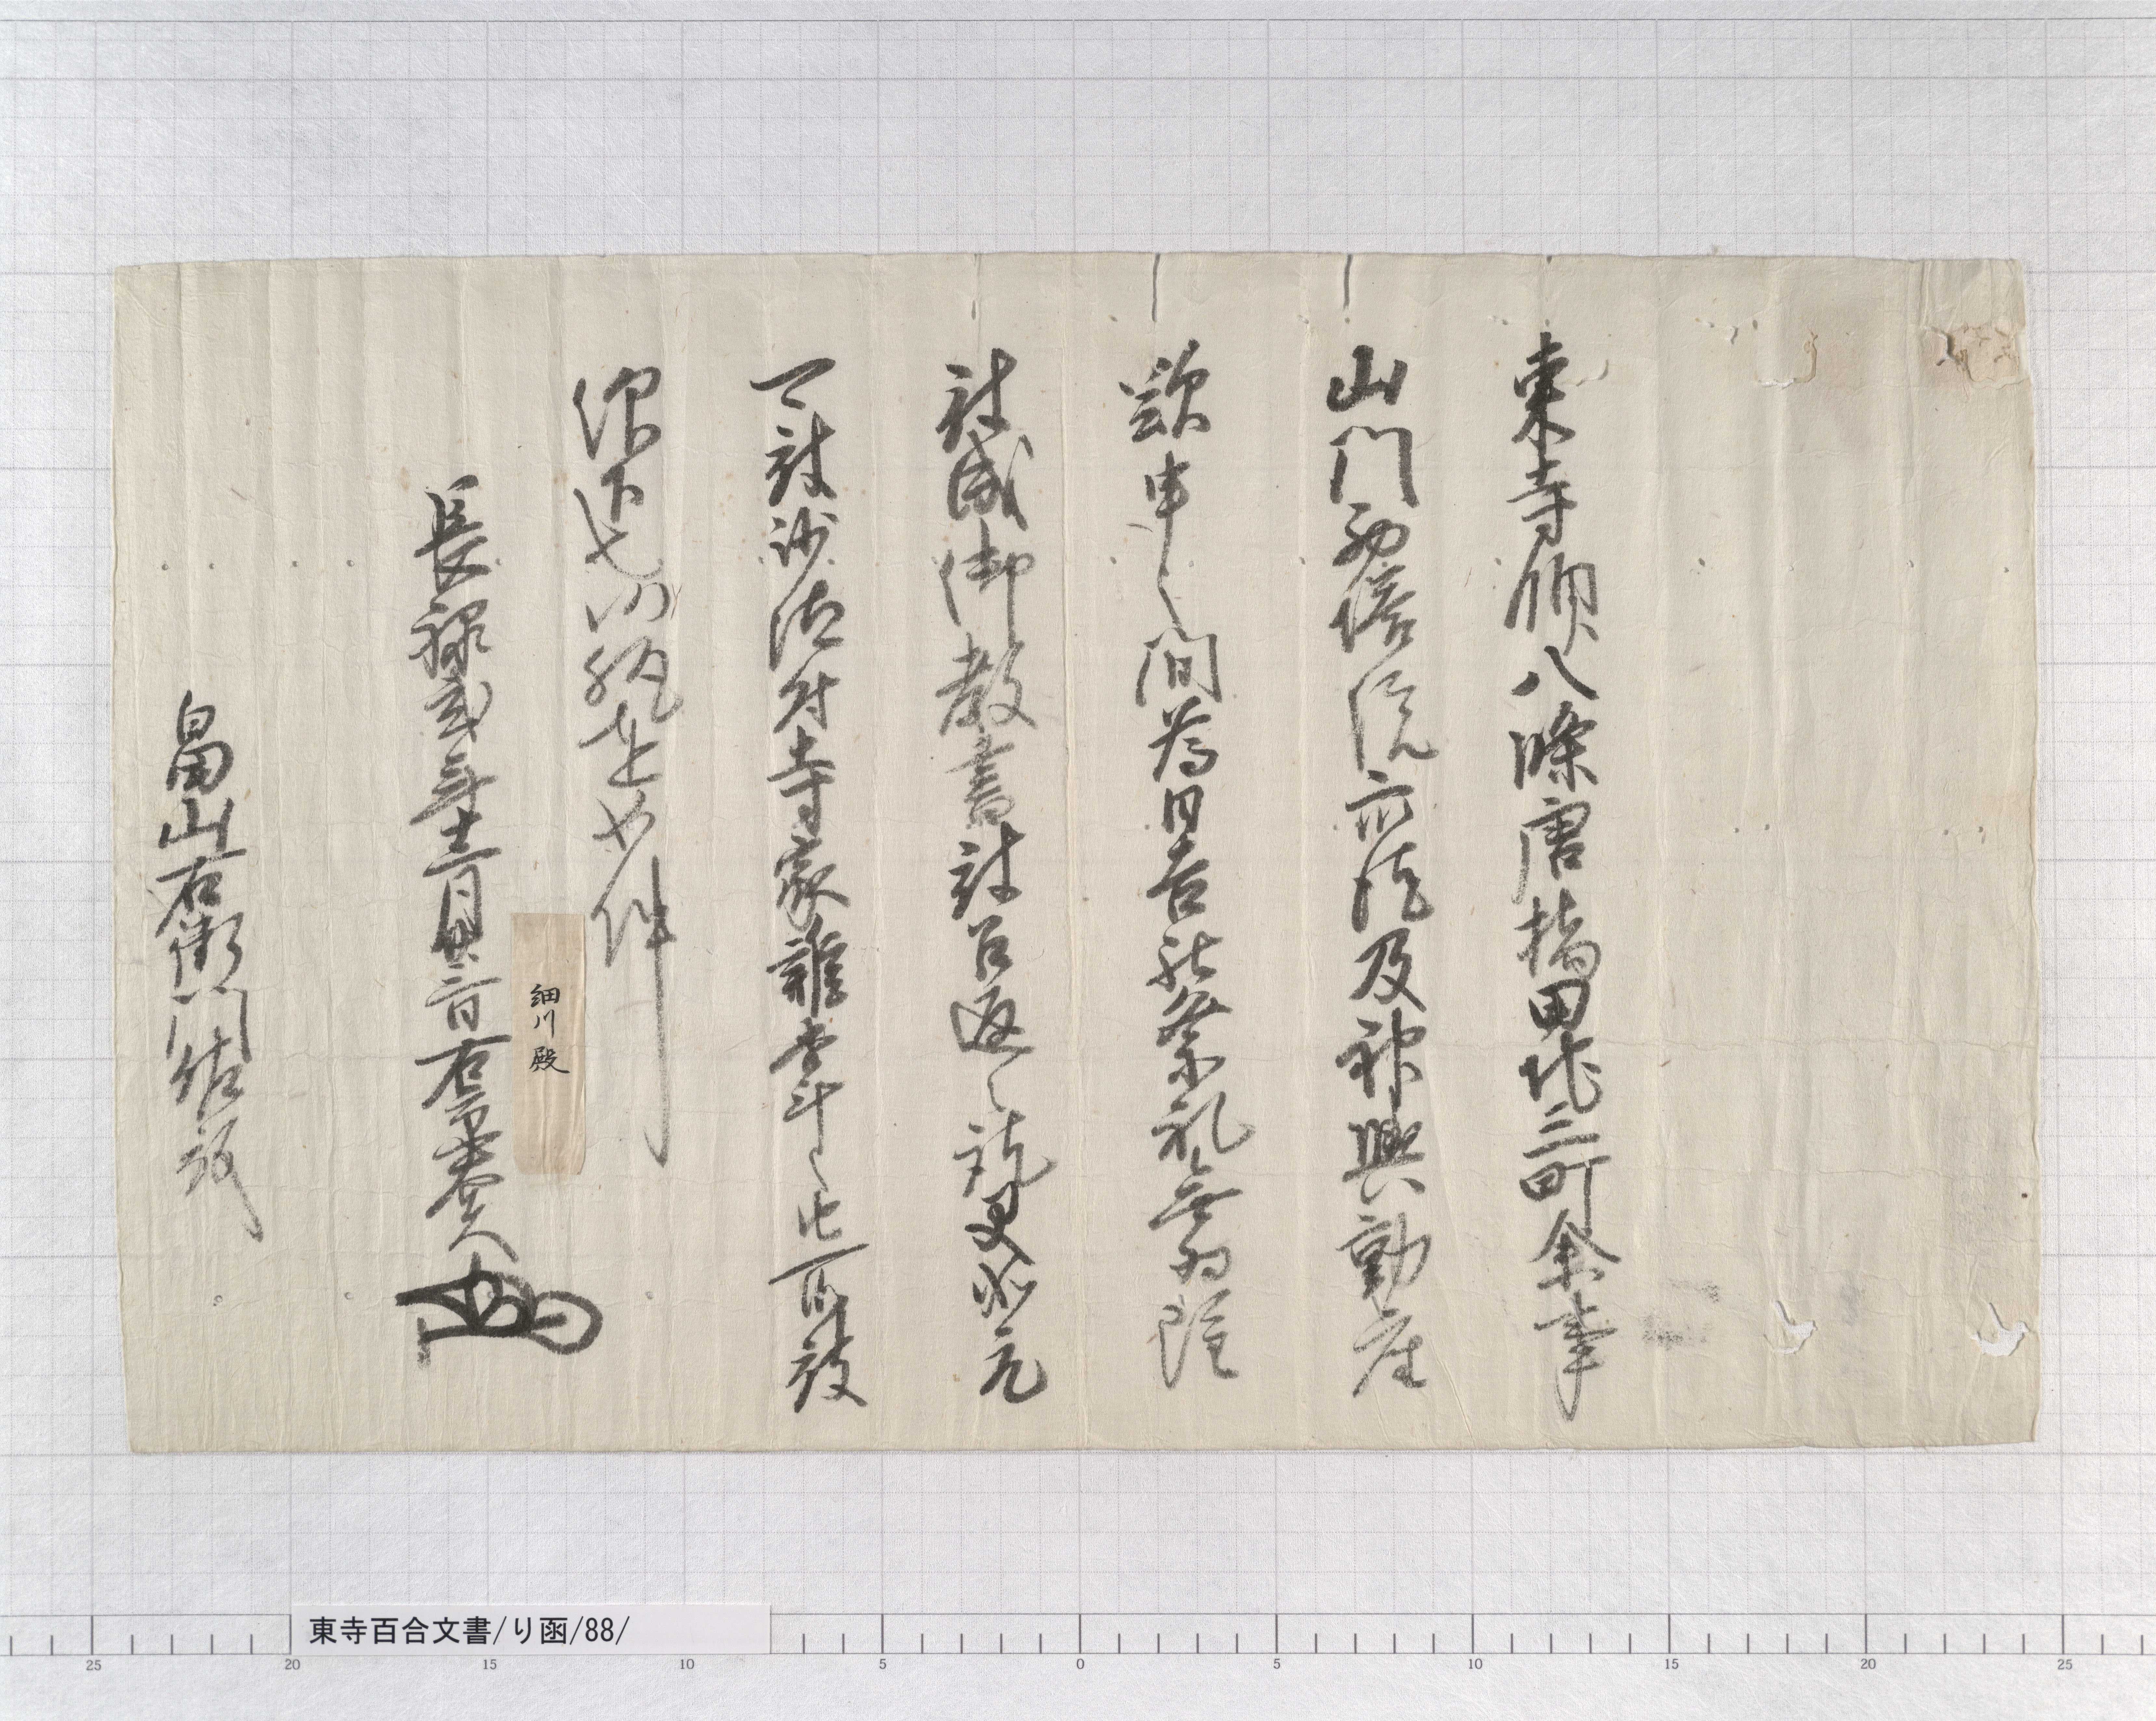 東寺領八條唐橋田地三町余事
山門西塔院訴訟及神輿動座
歎申之間為日吉社祭礼無為雖
被成御教書被召返之訖更非允
可被沙汰付寺家雑掌之由所被
仰下也仍執達如件
長禄弐年十二月廿六日右京大夫
畠山右衛門佐殿
細川殿
東寺百合文書/り函/88/
25 20 15 10 5 0 5 10 15 20 25